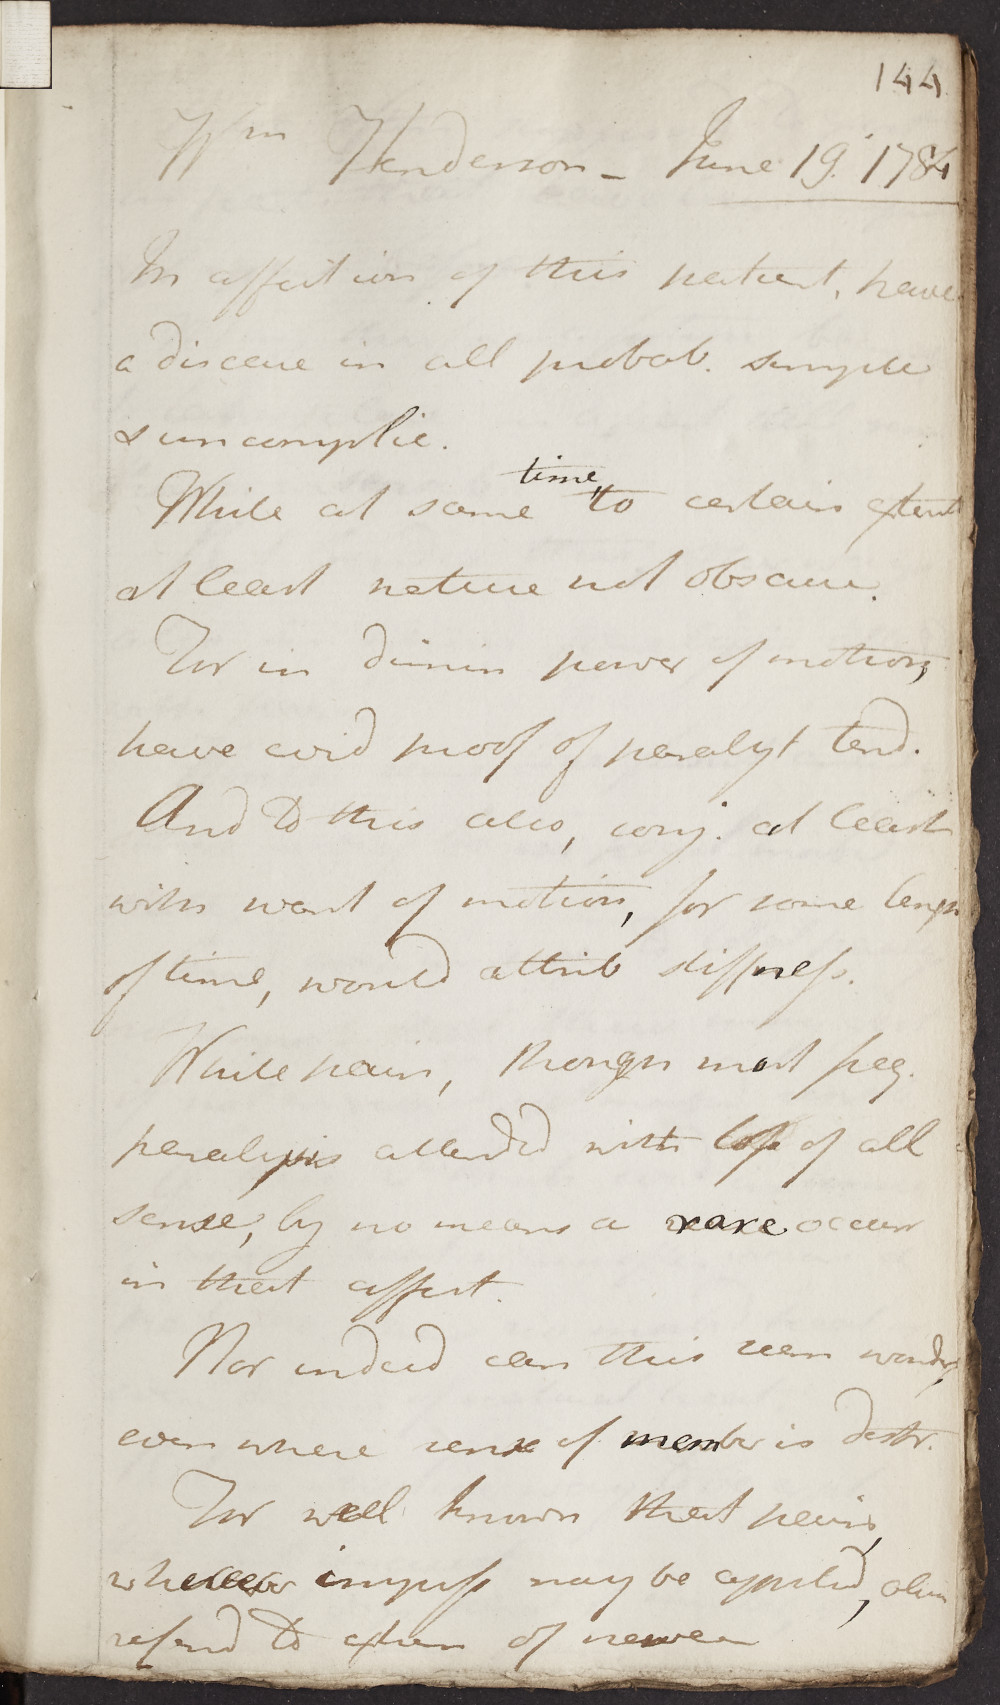 144
Wm Henderson - June 19. 1784
In affection of this patient, have
a disease in all probab. simple
& uncomplic.
While at same time to certain extent
at least nature not obscure.
For in dimin power of motion,
have evid proof of paralyt tend.
And to this also, conj. at least
with want of motion, for some length
of time, would attrib stiffness.
While pain, though most freq.
paralysis attended with loss of all
sense, by no means a rare occurr
in that affect.
Nor indeed can this seem wonder,
even where sense of member is destr.
For well known that pain,
wherever impress may be applied, often
referd to extrem of nerve